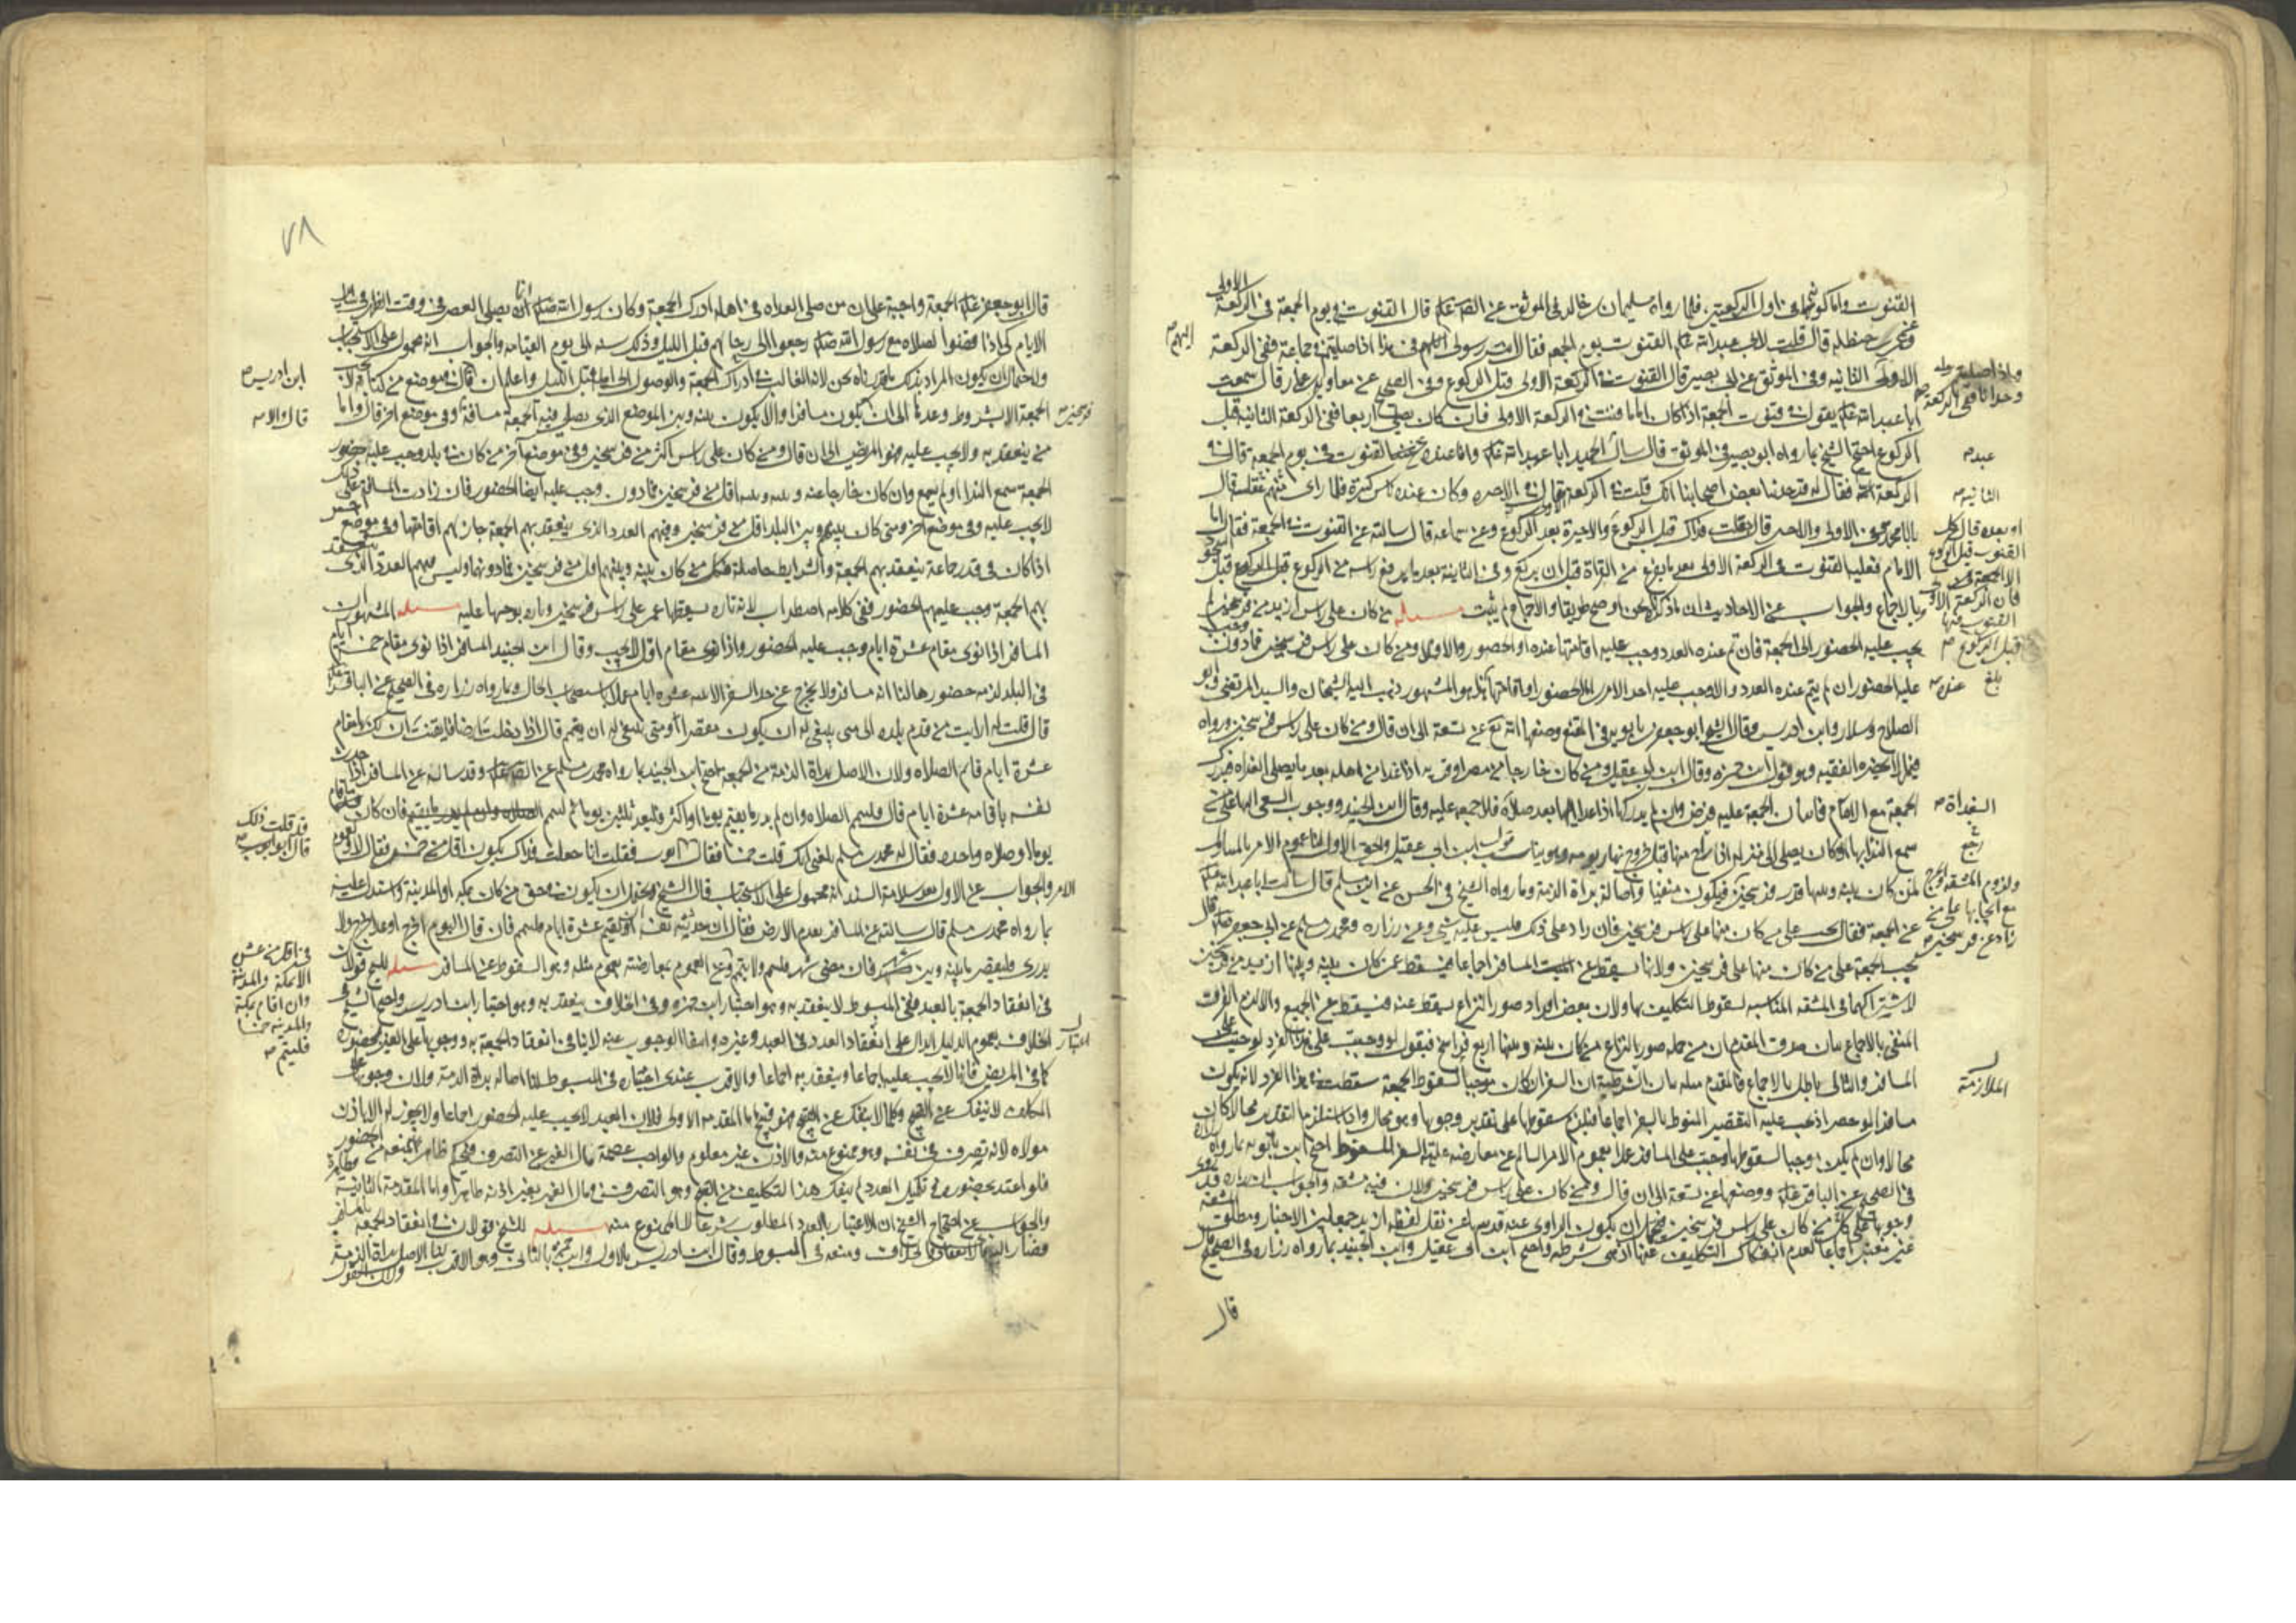 القنوت واما كونهما في اول الركعتين فلما رواه سليمان بن خالد في الموثق عن الصادق قال القنوت في يوم الجمعة في الركعة الاولى
وعن عمر بن حنظلة قال قلت لابي عبدالله القنوت يوم الجمعه فقال انت رسولي اليهم في هذا اذا صليتم في جماعة ففي الركعة
الاولى وفي الموثق عن ابي بصير قال القنوت في الركعة الاولى قبل الركوع وفي الصحيح عن معاوية بن عمار قال سمعت
ابا عبدالله يقول في قنوت الجمعة اذا كان اماما قنت في الركعة الاولى فان كان يصلي اربعا ففي الركعة الثانية قبل
الركوع احتج الشيخ بما رواه ابو بصير في الموثق قال سال عبد الحميد ابا عبدالله وانا عنده عن القنوت في يوم الجمعة قال في
الركعة الثانيه فقال له قد حدثنا بعض اصحابنا انك قلت في الركعة الاولى فقال في الاخيره وكان عنده ناس كثيرة فلما راى غفلة منهم قال
يا با محمد في الاولى والاخيره قال قلت قبل الركوع والاخيرة بعد الركوع وعن سماعه قال سالته عن القنوت في الجمعة فقال اما
الامام فعليه القنوت في الركعة الاولى بعد ما يفرغ من القراة قبل ان يركع وفي الثانية بعد ما يرفع راسه من الركوع قبل السجود
وبالاجماع والجواب عن الاحاديث ان ما ذكرناه نحن اوضح طريقا والاجماع لم يثبت مسئله من كان على راس ازيد من فرسخين لم
يجب عليه الحضور الى الجمعة فان تم عنده العدد وجب عليه اقامتها عنده او الحضور والا فلا ومن كان على راس فرسخين فما دون وجب
عليه الحضور ان لم يتم عنده العدد والا وجب عليه احد الامرين الحضور او اقامتها هذا هو المشهور ذهب اليه الشيخان والسيد المرتضى وابو
الصلاح وسلار وابن ادريس وقال الشيخ ابو جعفر بن بابويه في المقنع وضعها الله تع عن تسعة الى ان قال ومن كان على راس فرسخين ورواه
فيمن لا يحضره الفقيه وهو قول ابن حمزه وقال ابن ابي عقيل ومن كان خارجا من مصر او قرية اذا غدا من اهله بعد ما يصلي الغداه فيدرك
الجمعة مع الامام فاتيان الجمعة عليه فرض وان لم يدركها اذا غدا اليها بعد صلاة الغداة فلا جمعه عليه وقال ابن الجنيد ووجوب السعي اليها على من
سمع النداء بها او كان يصل الى منزله اذا راح منها قبل خروج نهار يومه وهو يناسب قول ابن ابي عقيل والحق الاول لنا عموم الامر السالم
لمن كان بينه وبينها قدر فرسخين فيكون منفيا واصالة براة الذمة وما رواه الشيخ في الحسن عن ابن مسلم قال سالت ابا عبدالله
عن الجمعة فقال تجب على من كان منها على راس فرسخين فان زاد على ذلك فليس عليه شي وعن زراره ومحمد بن مسلم عن ابي جعفر قال
تجب الجمعة على من كان منها على فرسخين ولانها يسقط عن المسافر اجماعا فيسقط عمن كان بينه وبينها ازيد من فرسخين
لاشتراكهما في المشقه المناسبه لسقوط التكليف بها ولان بعض افراد صور النزاع يسقط عنه فيسقط عن الجميع والا لزم الفرق
المنفي بالاجماع بيان صدق المقدم ان من جملة صور النزاع من كان بينه وبينها اربع فراسخ فنقول لو وجبت على هذا الفرد لوجبت على
المسافر والتالي باطل بالاجماع فالمقدم مثله بيان الشرطية ان السفر ان كان موجبا لسقوط الجمعة سقطت في هذا الفرد لانه يكون
مسافرا لو حضر اذ يجب عليه التقصير المنوط بالسفر اجماعا فيلزم سقوطها على تقدير وجوبها وهو محال واذا استلزم التقدير محالا كان
محالا وان لم يكن موجبا لسقوطها وجبت على المسافر عملا بعموم الامر السالم عن معارضة علية السفر للسقوط احتج ابن بابويه بما رواه زراره
في الصحيح عن الباقر ووضعها عن تسعة الى ان قال ومن كان على راس فرسخين ولان فيه مشقه والجواب
وجوبها على من كان على راس فرسخين فيحتمل ان يكون الراوي عنه قد سها عن نقل لفظه ازيد جمعا بين الاخبار ومطلق المشقه
غير معتبر اجماعا لعدم انفكاك التكليف عنها اذ هي شرطه واحتج ابن ابي عقيل وابن الجنيد بما رواه زراره في الصحيح قال
قال
اليهم
واذا صليتم
وحدانا ففي الركعة
عبد
الثانيه
او بعده قال كل
القنوت قبل الركوع
الا الجمعة
فان الركعة الاولى
القنوت فيها
قبل الركوع
بلغ
عنده
الغداة
ولزوم المشقه والحرج
مع ايجابها على من
زاد عن فرسخين
الملازمة
٧٨
قال ابو جعفر الجمعة واجبة على من ان صلى الغداه في اهله ادرك الجمعة وكان رسول الله انما يصلي العصر في وقت الظهر في ساير
الايام كي اذا قضوا الصلاه مع رسول الله رجعوا الى رحالهم قبل الليل وذلك سنه الى يوم القيامه والجواب انه محمول على الاستحباب
ولاحتمال ان يكون المراد بذلك ما قدرناه نحن لانه الغالب في ادراك الجمعة والوصول الى اهله قبل الليل واعلم ان ابن ادريس قال في موضع من كتابه تجب
الجمعة الا بشروط وعدها الى ان قال والا يكون مسافرا والا يكون بينه وبين الموضع الذي يصلي فيه الجمعة مسافة فرسخين وفي موضع اخر قال واما
من ينعقد به ولا يجب عليه فهو المريض الى ان قال ومن كان على راس اكثر من فرسخين وفي موضع اخر من كان في بلد وجب عليه حضور
الجمعة سمع النداء او لم يسمع وان كان خارجا عنه وبينه وبينه اقل من فرسخين فما دون وجب عليه ايضا الحضور فان زادت المسافة على ذلك
لا يجب عليه وفي موضع اخر ومتى كان بينهم وبين البلد اقل من فرسخين وفيهم العدد الذي ينعقد بهم الجمعة جاز لهم اقامتها وفي موضع اخر
اذا كان في قدر جماعة ينعقد بهم الجمعة والشرايط حاصلة فكل من كان بينه وبينهم اقل من فرسخين فما دونها وليس فيهم العدد الذي ينعقد
بهم الجمعة وجب عليهم الحضور ففي كلامه اضطراب لانه تارة يسقطها عمن على راس فرسخين وتارة يوجبها عليه مسئله المشهور ان
المسافر اذا نوى مقام عشرة ايام وجب عليه الحضور واذا نوى مقام اقل لا يجب وقال ابن الجنيد المسافر اذا نوى مقام خمسة ايام
في البلد لزمه حضورها لنا انه مسافر ولا يخرج عن حد السفر الا بنية عشره ايام عملا باستصحاب الحال وبما رواه زراره في الصحيح عن الباقر
قال قلت له ارايت من قدم بلده الى متى ينبغي له ان يكون مقصرا ومتى ينبغي له ان يتم قال اذا دخلت ارضا فايقنت ان لك بها مقام
عشرة ايام فاتم الصلاه ولان الاصل براة الذمة من الجمعة احتج ابن الجنيد بما رواه محمد بن مسلم عن الصادق وقد ساله عن المسافر اذا حدث
نفسه باقامه عشرة ايام قال فليتم الصلاه وان لم يدر ما يقيم يوما او اكثر فليعد ثلثين يوما ثم ليتم فان كان اقام
يوما او صلاه واحده فقال له محمد بن مسلم بلغني انك قلت خمسا فقال ابو ايوب فقلت انا جعلت فداك يكون اقل من خمس فقال لا
والجواب عن الاول بعد سلامة السند انه محمول على الاستحباب قال الشيخ ويحتمل ان يكون في حق من كان بمكه او المدينة واستدل عليه
بما رواه محمد بن مسلم قال سالته عن المسافر يقدم الارض فقال ان حدثته نفسه ان يقيم عشرة ايام فليتم فان قال اليوم اخرج او غدا اخرج ولا
يدري فليقصر ما بينه وبين شهر فان مضى شهر فليتم ولا يتم وعن العموم بمعارضته بعموم مثله وهو السقوط عن المسافر مسئله للشيخ قولان
في انعقاد الجمعة بالعبد ففي المبسوط لا ينعقد به وهو اختيار ابن حمزه وفي الخلاف ينعقد به وهو اختيار ابن ادريس واحتج الشيخ في
الخلاف بعموم الدليل الدال على اعتبار انعقاد العدد في العبد وغيره وانتفاء الوجوب عنه لا ينافي انعقاد الجمعة به ووجوبها على الغير بحضوره
كما في المريض فانه لا يجب عليه اجماعا وينعقد به اجماعا والاقرب عندي اختياره في المبسوط لنا اصاله براة الذمة ولان وجوبها على
المكلف لا ينفك عن القبيح وكل ما لا ينفك عن القبيح فهو قبيح اما المقدمه الاولى فلان العبد لا يجب عليه الحضور اجماعا ولا يجوز له الا باذن
مولاه لانه تصرف في نفسه وهو ممنوع منه والاذن غير معلوم والواجب عصمة مال الغير عن التصرف فيحكم ظاهرا بمنعه من الحضور
فلو اعتد بحضوره في تكميل العدد لم ينفك هذا التكليف من القبيح وهو التصرف في مال الغير بغير اذنه ظاهرا واما المقدمة الثانية فظاهرة
والجواب عن احتجاج الشيخ ان الاعتبار بالعدد المطلوب شرعا لا الممنوع منه مسئله للشيخ قولان في انعقاد الجمعة بالمسافر
الخلاف ومنعه في المبسوط وقال ابن ادريس بالاول وابن حمزه بالثاني وهو الاقرب لنا الاصل براة الذمة
ابن ادريس
قال والا
فرسخين
قد قلت ذلك
قال ابو ايوب
الامر
في اقل من عشر
الا بمكة والمدينة
وان اقام بمكة
والمدينه خمسا
فليتم
اعتبار